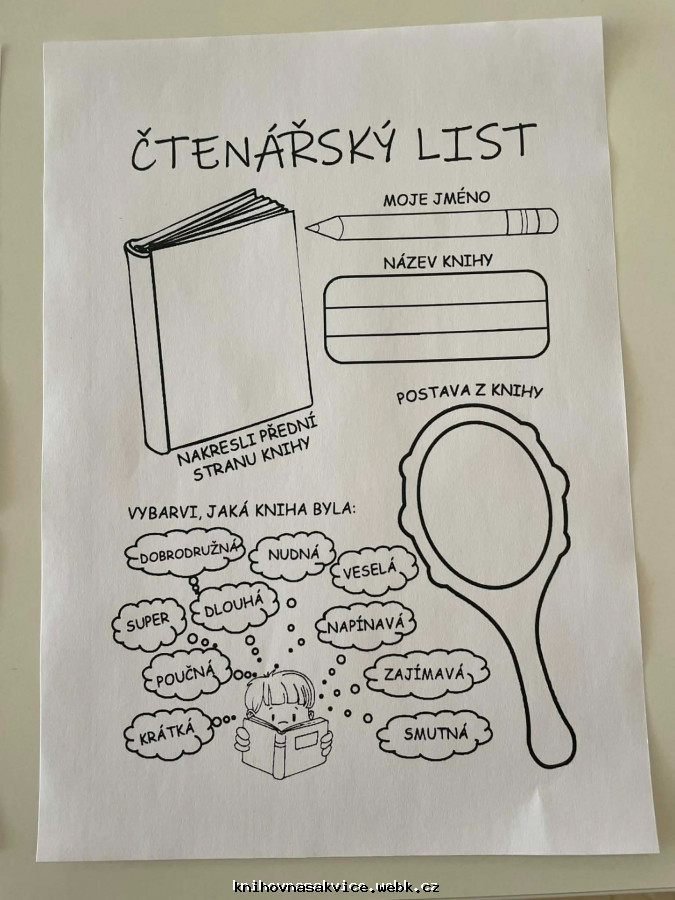 ČTENÁŘSKÝ LIST
MOJE JMÉNO
NÁZEV KNIHY
NAKRESLI PŘEDNÍ
STRANU KNIHY
POSTAVA Z KNIHY
VYBARVI, JAKÁ KNIHA BYLA:
DOBRODRUŽNÁ
NUDNÁ
VESELÁ
SUPER
DLOUHÁ
NAPÍNAVÁ
POUČNÁ
ZAJÍMAVÁ
KRÁTKÁ
SMUTNÁ
knihovnasakvice.webk.cz